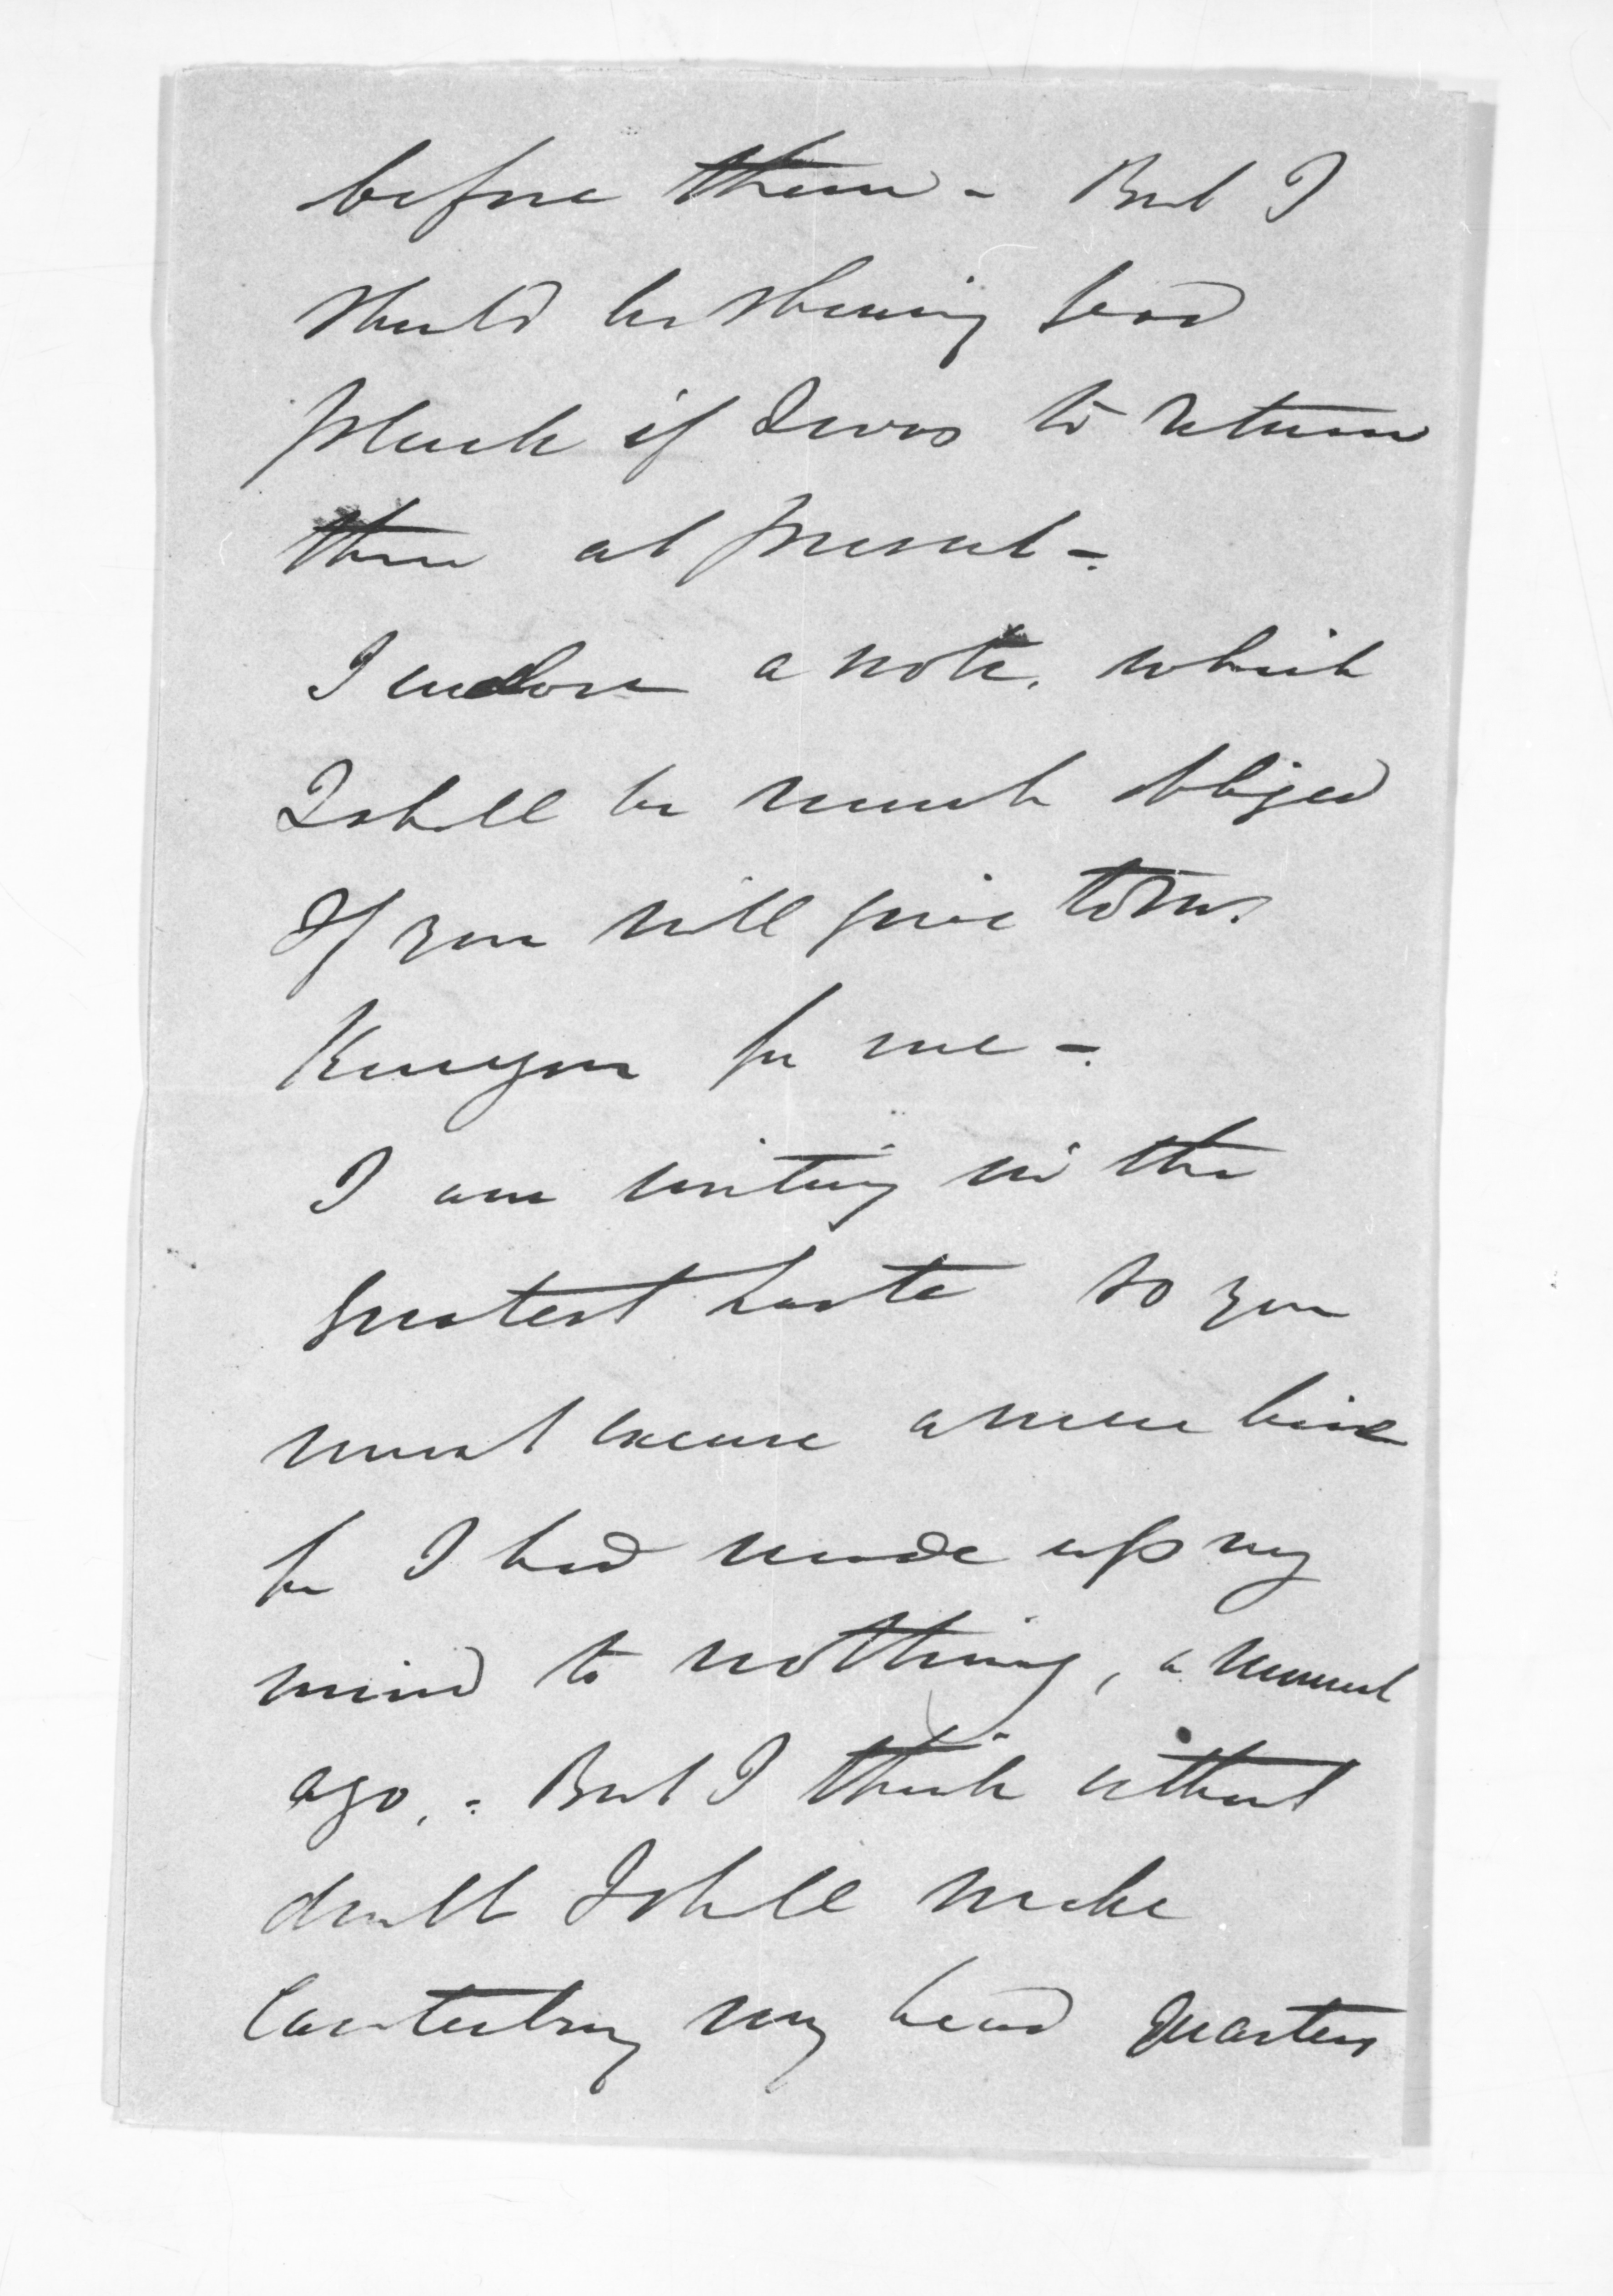 before them - But I
should be showing bad
pluck if I was to return
there at present -.
I enclose a note. which
I shall be much obliged
If you will give to Mr.
Kenyon for me -.
I am writing in the
greatest haste so you
must excuse a mere line
for I had made up my
mind to nothing, a moment
ago, - But I think without
doubt I shall make
Canterbury my head quarters